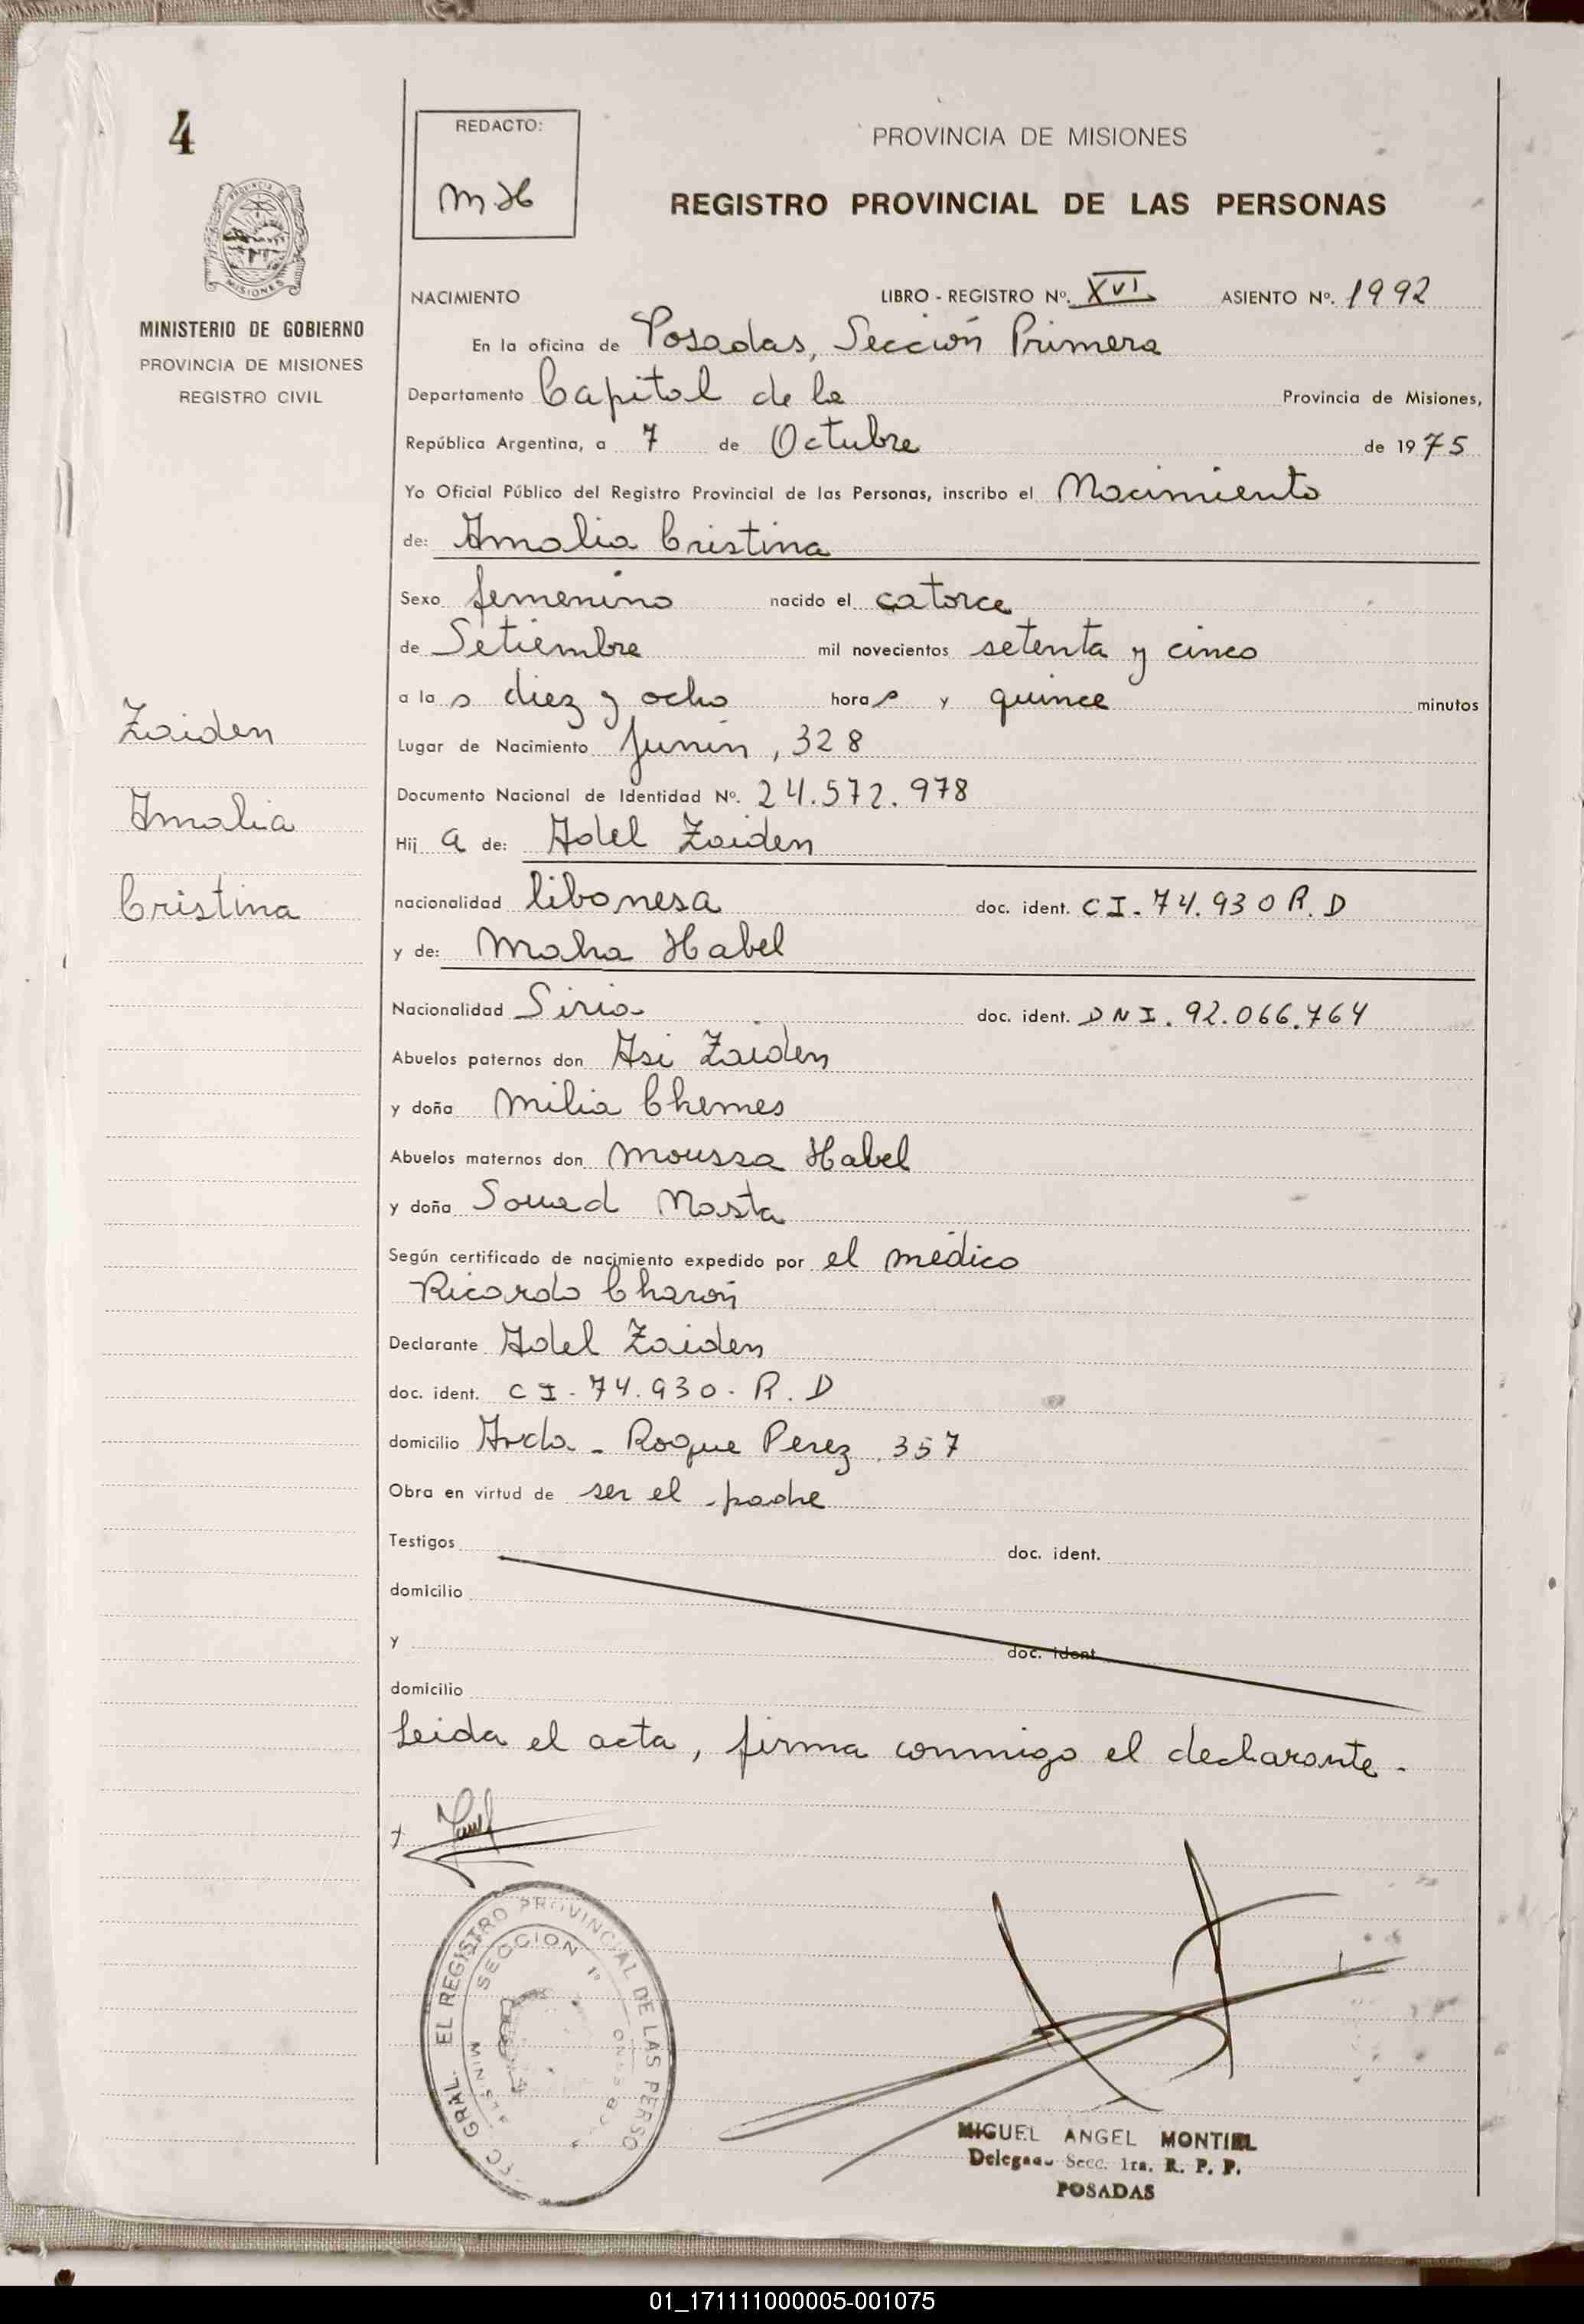 4
REDACTO:
M.H
PROVINCIA DE MISIONES
REGISTRO PROVINCIAL DE LAS PERSONAS
MISIONES
MINISTERIO DE GOBIERNO
PROVINCIA DE MISIONES
REGISTRO CIVIL
NACIMIENTO LIBRO - REGISTRO Nº. XVI ASIENTO Nº. 1992
En la oficina de Posadas, Sección Primera
Departamento Capital de la Provincia de Misiones,
República Argentina, a 7 de Octubre de 1975
Yo Oficial Público del Registro Provincial de las Personas, inscribo el Nacimiento
de: Amalia Cristina
Sexo femenino nacido el catorce
de Setiembre mil novecientos setenta y cinco
a las diez y ocho horas y quince minutos
Lugar de Nacimiento Junín, 328
Documento Nacional de Identidad Nº. 24.572.978
Hija de: Adel Zaiden
nacionalidad libanesa doc. ident. CI. 74.930 R.D
y de: Maha Habel
Nacionalidad Siria doc. ident. DNI. 92.066.764
Abuelos paternos don Asi Zaiden
y doña Milia Chemes
Abuelos maternos don Moussa Habel
y doña Souad Nasta
Según certificado de nacimiento expedido por el médico
Ricardo Charón
Declarante Adel Zaiden
doc. ident. CI. 74.930. R.D
domicilio Avda. Roque Perez 357
Obra en virtud de ser el padre
Testigos doc. ident.
domicilio
y doc. ident.
domicilio
Leida el acta, firma conmigo el declarante.
Zaiden
Amalia
Cristina
EL REGISTRO PROVINCIAL DE LAS PERSO
GRAL.
SECCION 1ª
MIGUEL ANGEL MONTIEL
Delegado Secc. 1ra. R. P. P.
POSADAS
01_171111000005-001075